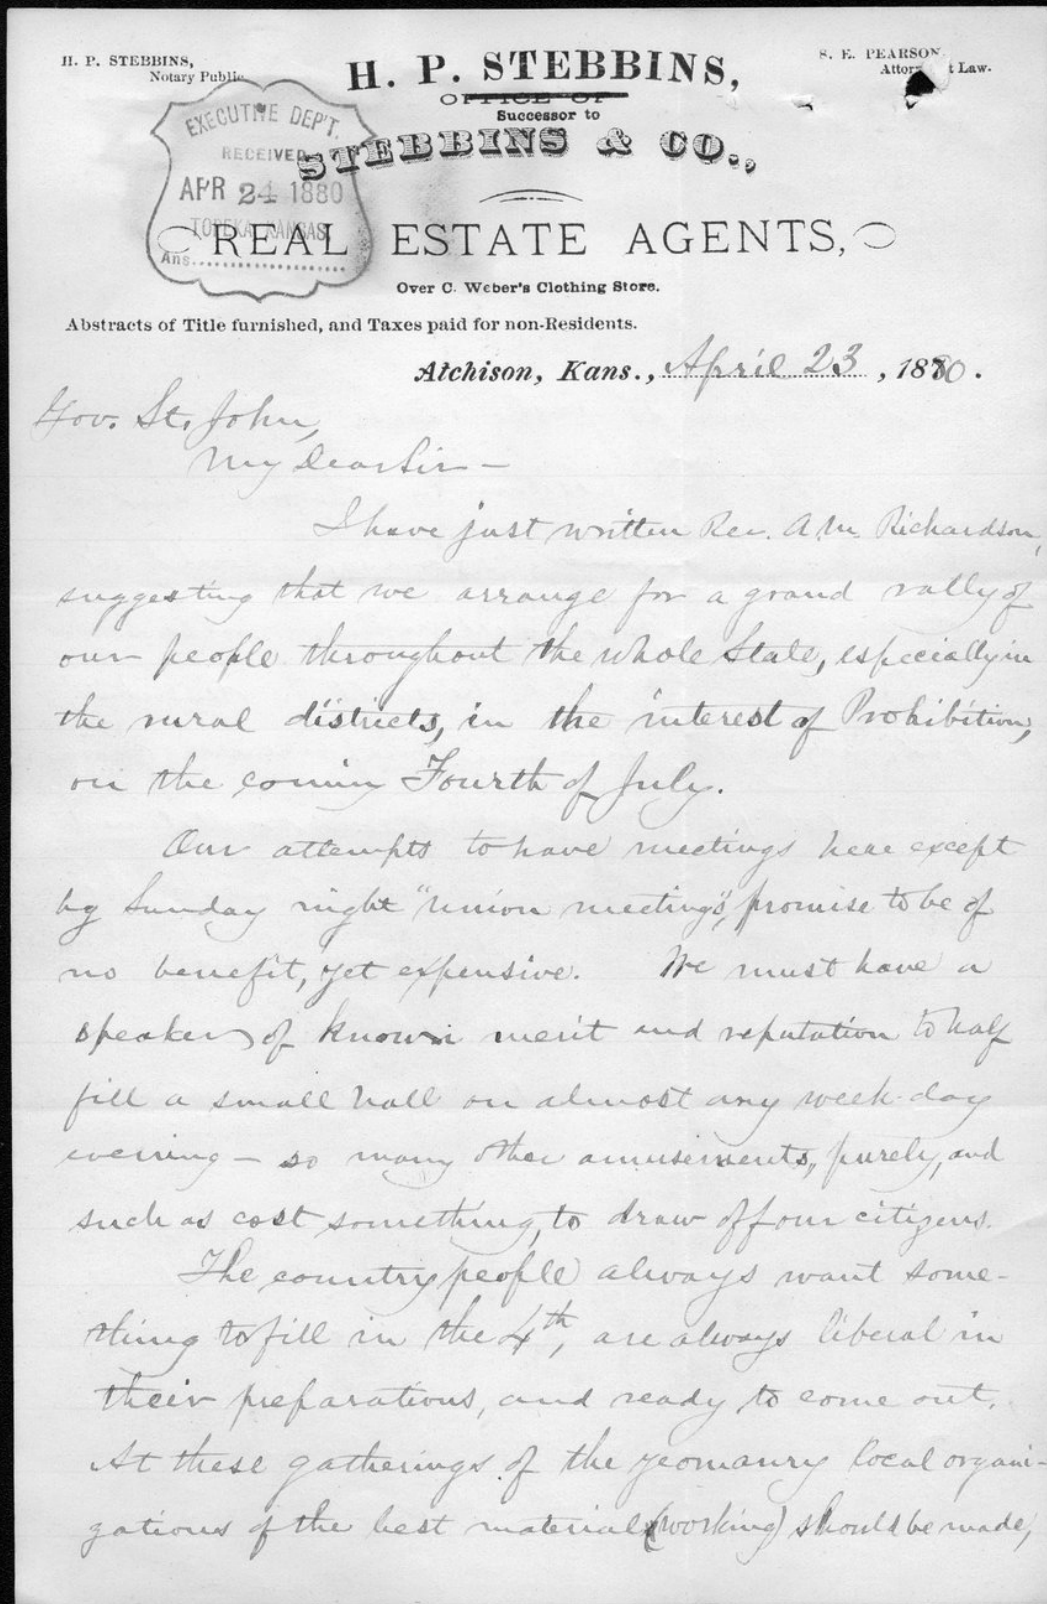 H. P. STEBBINS,
Notary Public
S. E. PEARSON,
Attorney at Law.
H. P. STEBBINS,
OFFICE OF
Successor to
STEBBINS & CO.,
EXECUTIVE DEP'T.
RECEIVED
APR 24 1880
TOPEKA, KANSAS
Ans
REAL ESTATE AGENTS,
Over C. Weber's Clothing Store.
Abstracts of Title furnished, and Taxes paid for non-Residents.
Atchison, Kans., April 23, 1880.
Gov. St. John,
My Dear Sir —
I have just written Rev. A. M. Richardson,
suggesting that we arrange for a grand rally of
our people throughout the whole State, especially in
the rural districts, in the interest of Prohibition,
on the coming Fourth of July.
Our attempts to have meetings here except
by Sunday night "union meetings", promise to be of
no benefit, yet expensive. We must have a
speaker of known merit and reputation to half
fill a small hall on almost any week-day
evening — so many other amusements, purely, and
such as cost something, to draw off our citizens.
The country people always want some-
thing to fill in the 4th, are always liberal in
their preparations, and ready to come out.
At these gatherings of the yeomanry local organi-
zations of the best material (working) should be made,